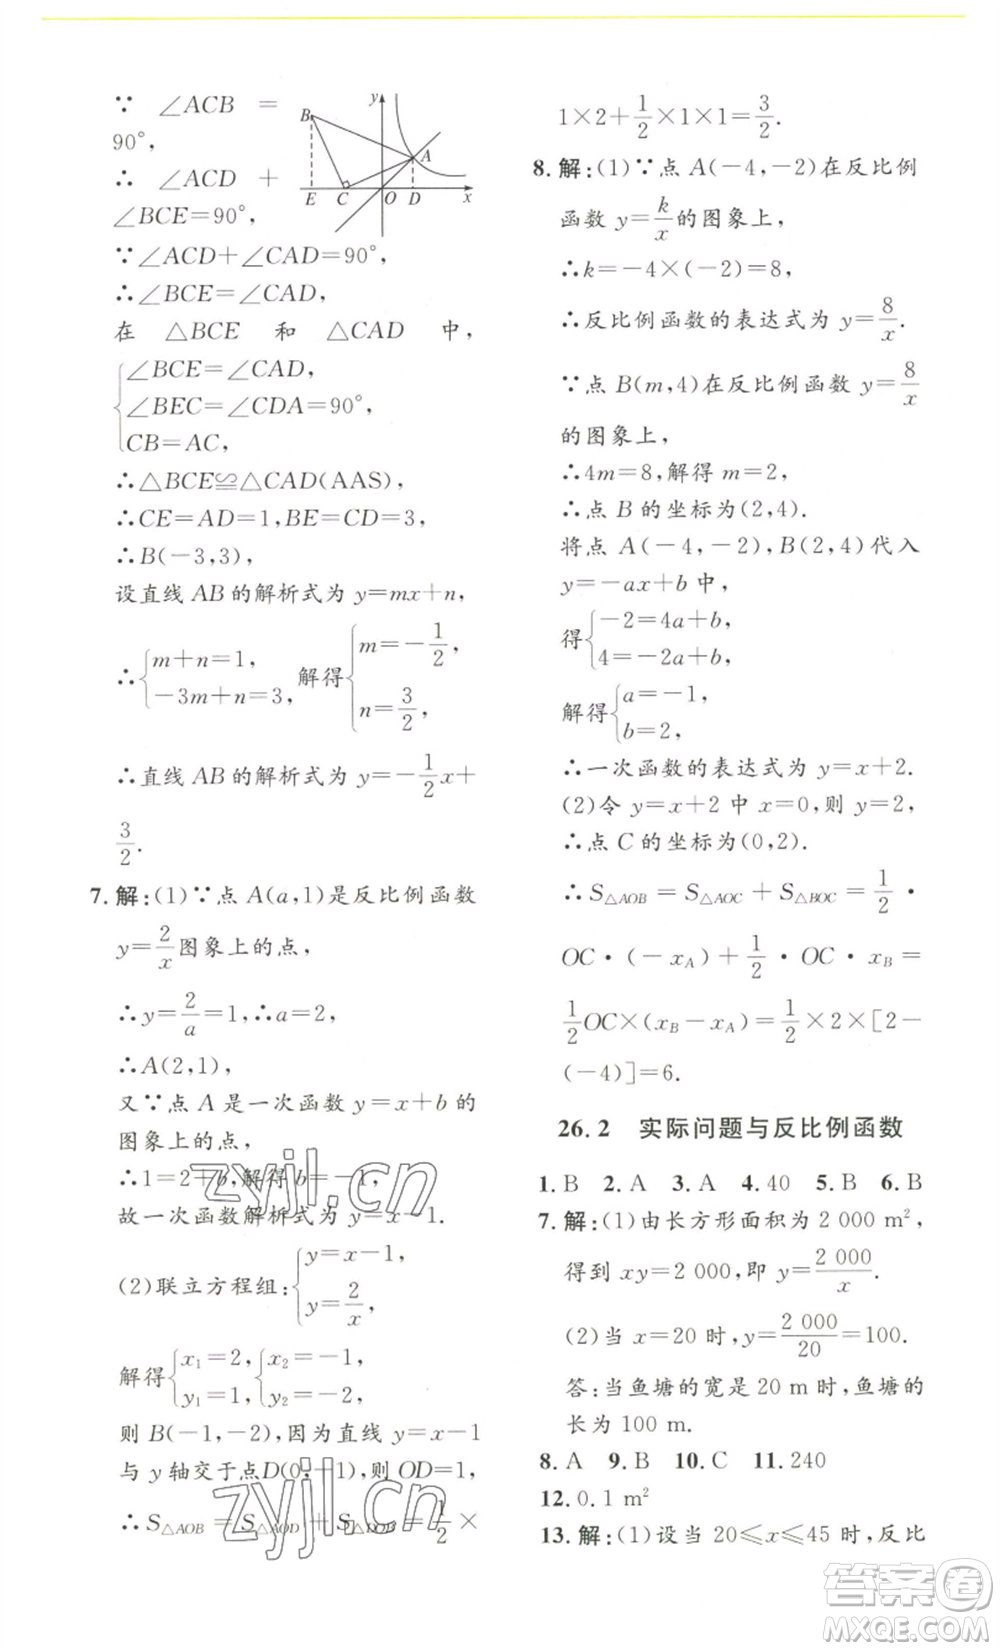 ∵ ∠ACB =
90°,
∴ ∠ACD +
∠BCE=90°,
y
B
A
E C O D x
∵∠ACD+∠CAD=90°,
∴∠BCE=∠CAD,
在 △BCE 和 △CAD 中,
∠BCE=∠CAD,
∠BEC=∠CDA=90°,
CB=AC,
∴△BCE≌△CAD(AAS),
∴CE=AD=1,BE=CD=3,
∴B(-3,3),
设直线 AB 的解析式为 y=mx+n,
∴{m+n=1, -3m+n=3, 解得{m=-1/2, n=3/2,
∴直线 AB 的解析式为 y=-1/2x+
3/2.
7.解:(1)∵点 A(a,1)是反比例函数
y=2/x图象上的点,
∴y=2/a=1,∴a=2,
∴A(2,1),
又∵点 A 是一次函数 y=x+b 的
图象上的点,
∴1=2+b,解得 b=-1,
故一次函数解析式为 y=x-1.
(2)联立方程组:{y=x-1, y=2/x,
解得{x₁=2, y₁=1, {x₂=-1, y₂=-2,
则 B(-1,-2),因为直线 y=x-1
与 y 轴交于点D(0,-1),则 OD=1,
∴S△AOB=S△AOD+S△DOB=1/2×
1×2+1/2×1×1=3/2.
8.解:(1)∵点 A(-4,-2)在反比例
函数 y=k/x的图象上,
∴k=-4×(-2)=8,
∴反比例函数的表达式为 y=8/x.
∵点 B(m,4)在反比例函数 y=8/x
的图象上,
∴4m=8,解得 m=2,
∴点 B 的坐标为(2,4).
将点 A(-4,-2),B(2,4)代入
y=-ax+b 中,
得{-2=4a+b, 4=-2a+b,
解得{a=-1, b=2,
∴一次函数的表达式为 y=x+2.
(2)令 y=x+2 中 x=0,则 y=2,
∴点 C 的坐标为(0,2).
∴S△AOB=S△AOC+S△BOC=1/2·
OC·(-xA)+1/2·OC·xB=
1/2OC×(xB-xA)=1/2×2×[2-
(-4)]=6.
26.2 实际问题与反比例函数
1.B 2.A 3.A 4.40 5.B 6.B
7.解:(1)由长方形面积为 2 000 m²,
得到 xy=2 000,即 y=2 000/x.
(2)当 x=20 时,y=2 000/20=100.
答:当鱼塘的宽是 20 m时,鱼塘的
长为 100 m.
8.A 9.B 10.C 11.240
12.0.1 m²
13.解:(1)设当 20≤x≤45 时,反比
zyjl.cn
zyjl.cn
答案圈
MXQE.COM